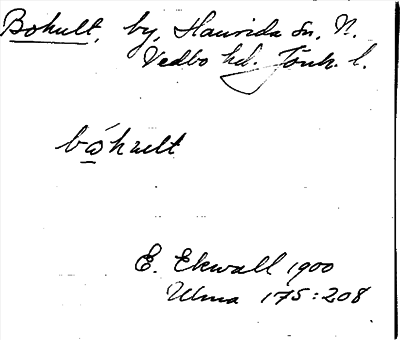 Bohult, by, Haurida sn, N.
Vedbo hd. Jönk. l.
bώhult
E. Ekwall 1900
Ulma 175:208